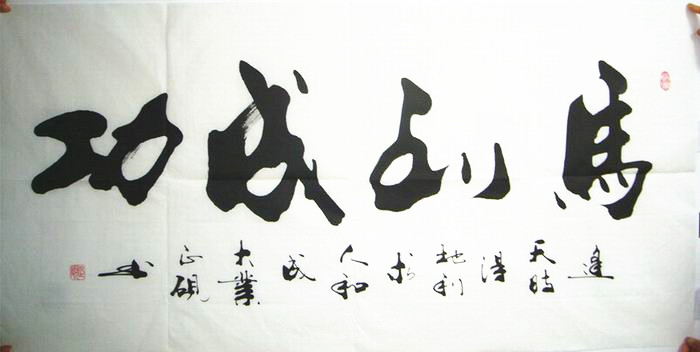 馬到成功
逢天時得地利求人和成大業正硯书